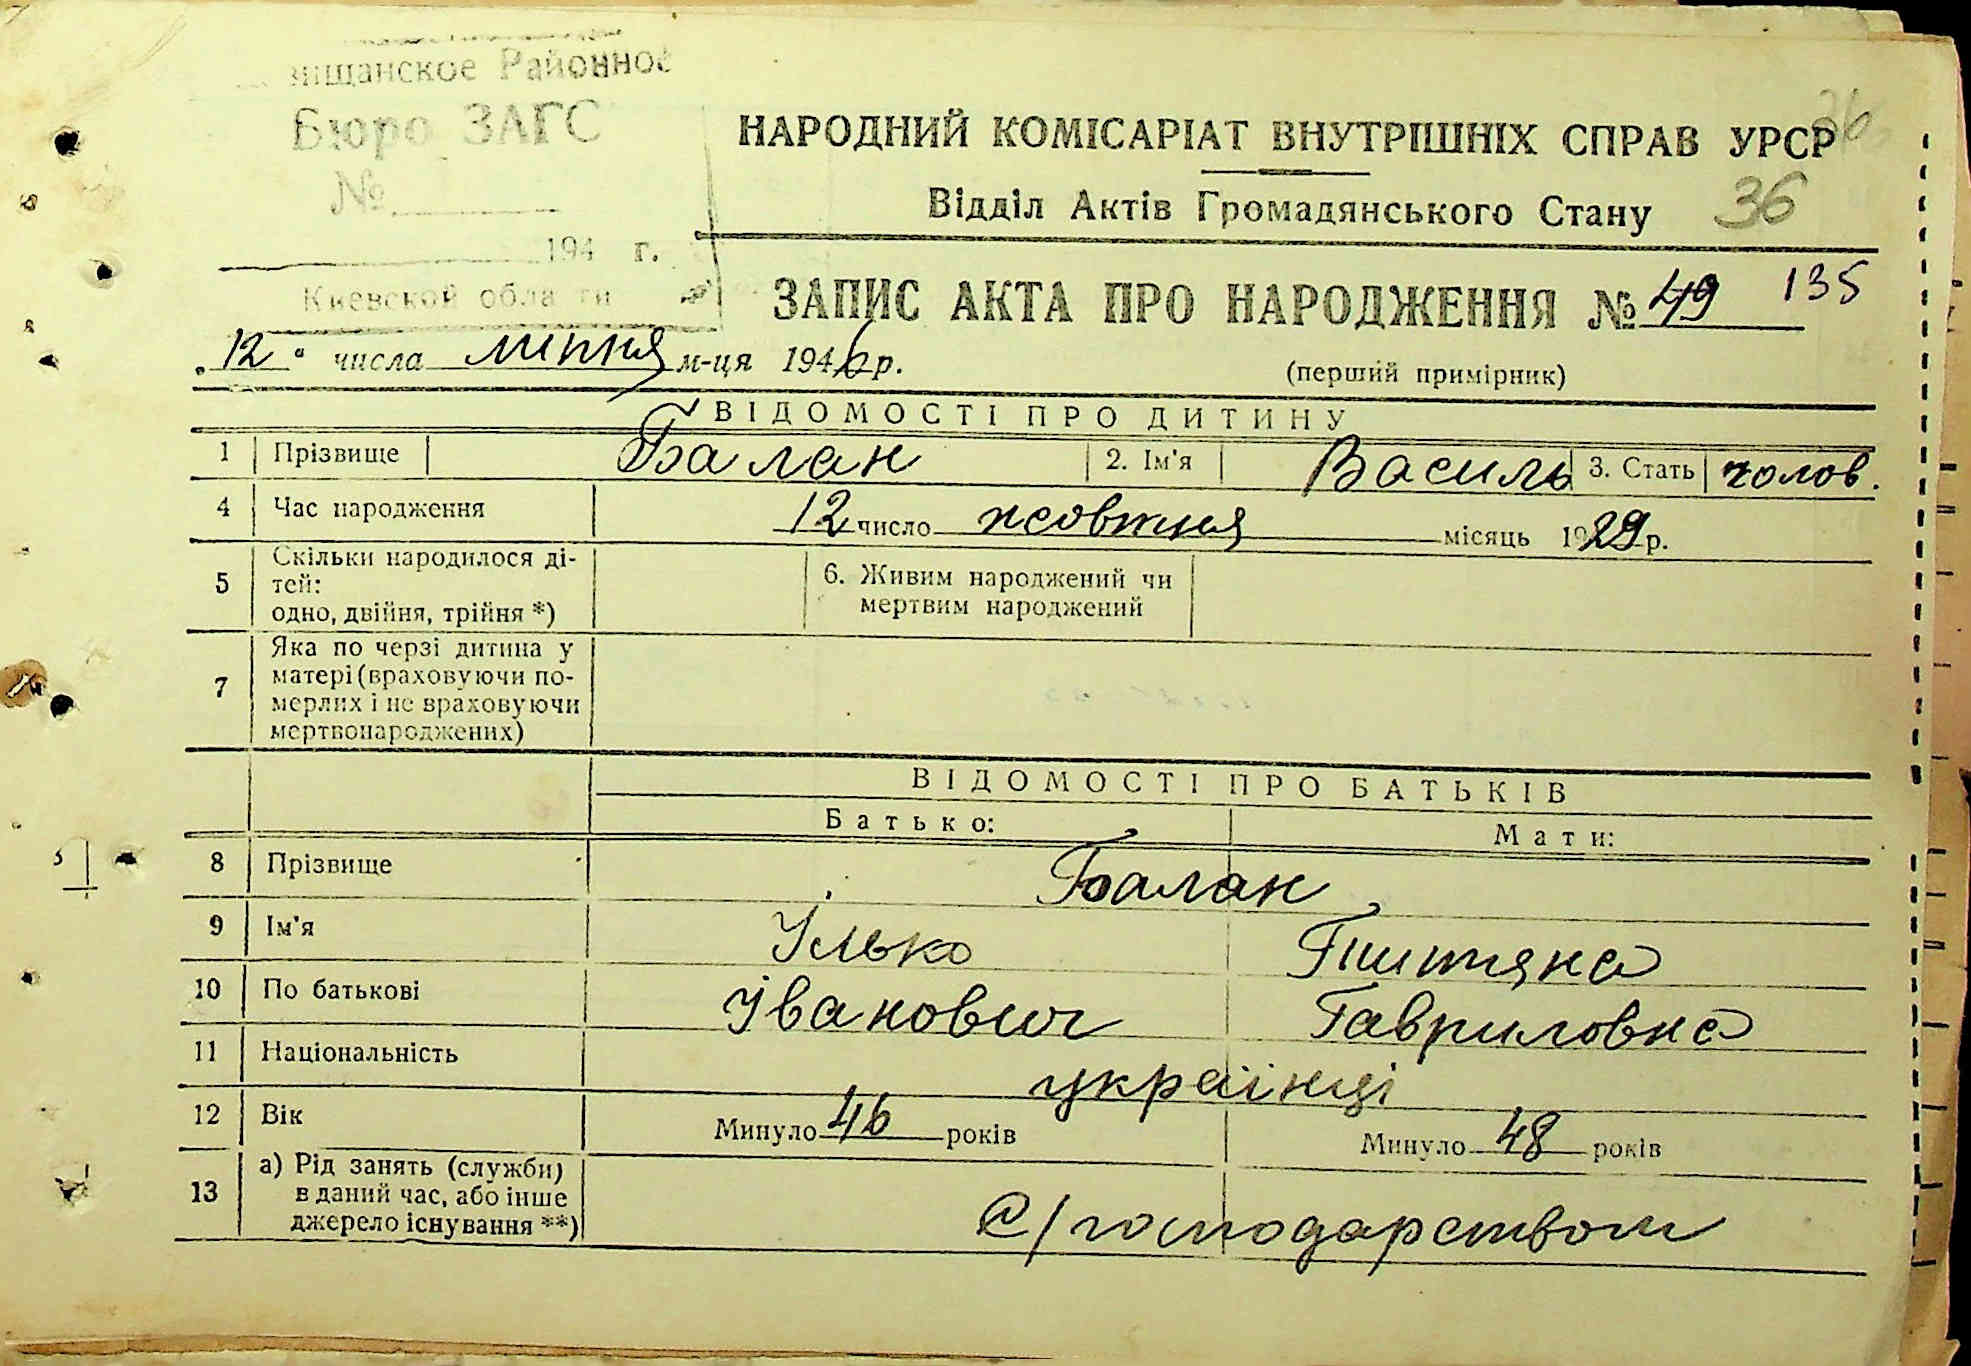 Районное
Бюро ЗАГС
№
194 г.
Киевской области
36
НАРОДНИЙ КОМІСАРІАТ ВНУТРІШНІХ СПРАВ УРСР
Відділ Актів Громадянського Стану 36
ЗАПИС АКТА ПРО НАРОДЖЕННЯ № 49 135
„12“ числа липня м-ця 1946 р.
(перший примірник)
ВІДОМОСТІ ПРО ДИТИНУ
1 Прізвище Балан 2. Ім'я Василь 3. Стать чолов.
4 Час народження 12 число жовтня місяць 1929 р.
5 Скільки народилося ді-
тей:
одно, двійня, трійня *)
6. Живим народжений чи
мертвим народжений
7 Яка по черзі дитина у
матері (враховуючи по-
мерлих і не враховуючи
мертвонароджених)
ВІДОМОСТІ ПРО БАТЬКІВ
Батько: Мати:
8 Прізвище Балан
9 Ім'я Ілько
10 По батькові Іванович Гавриловна
11 Національність українці
12 Вік Минуло 46 років Минуло 48 років
13 а) Рід занять (служби)
в даний час, або інше
джерело існування **)
С/господарством